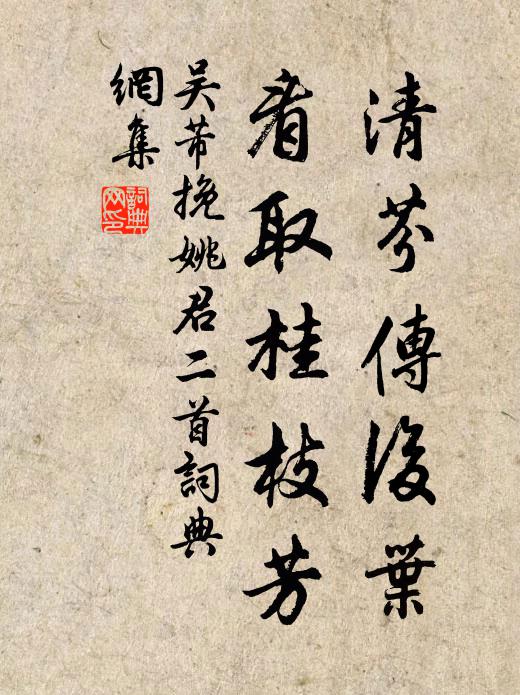 清芬傳後葉
看取桂枝芳
吳芾挽姚君二首詞典
網集
詞典網印